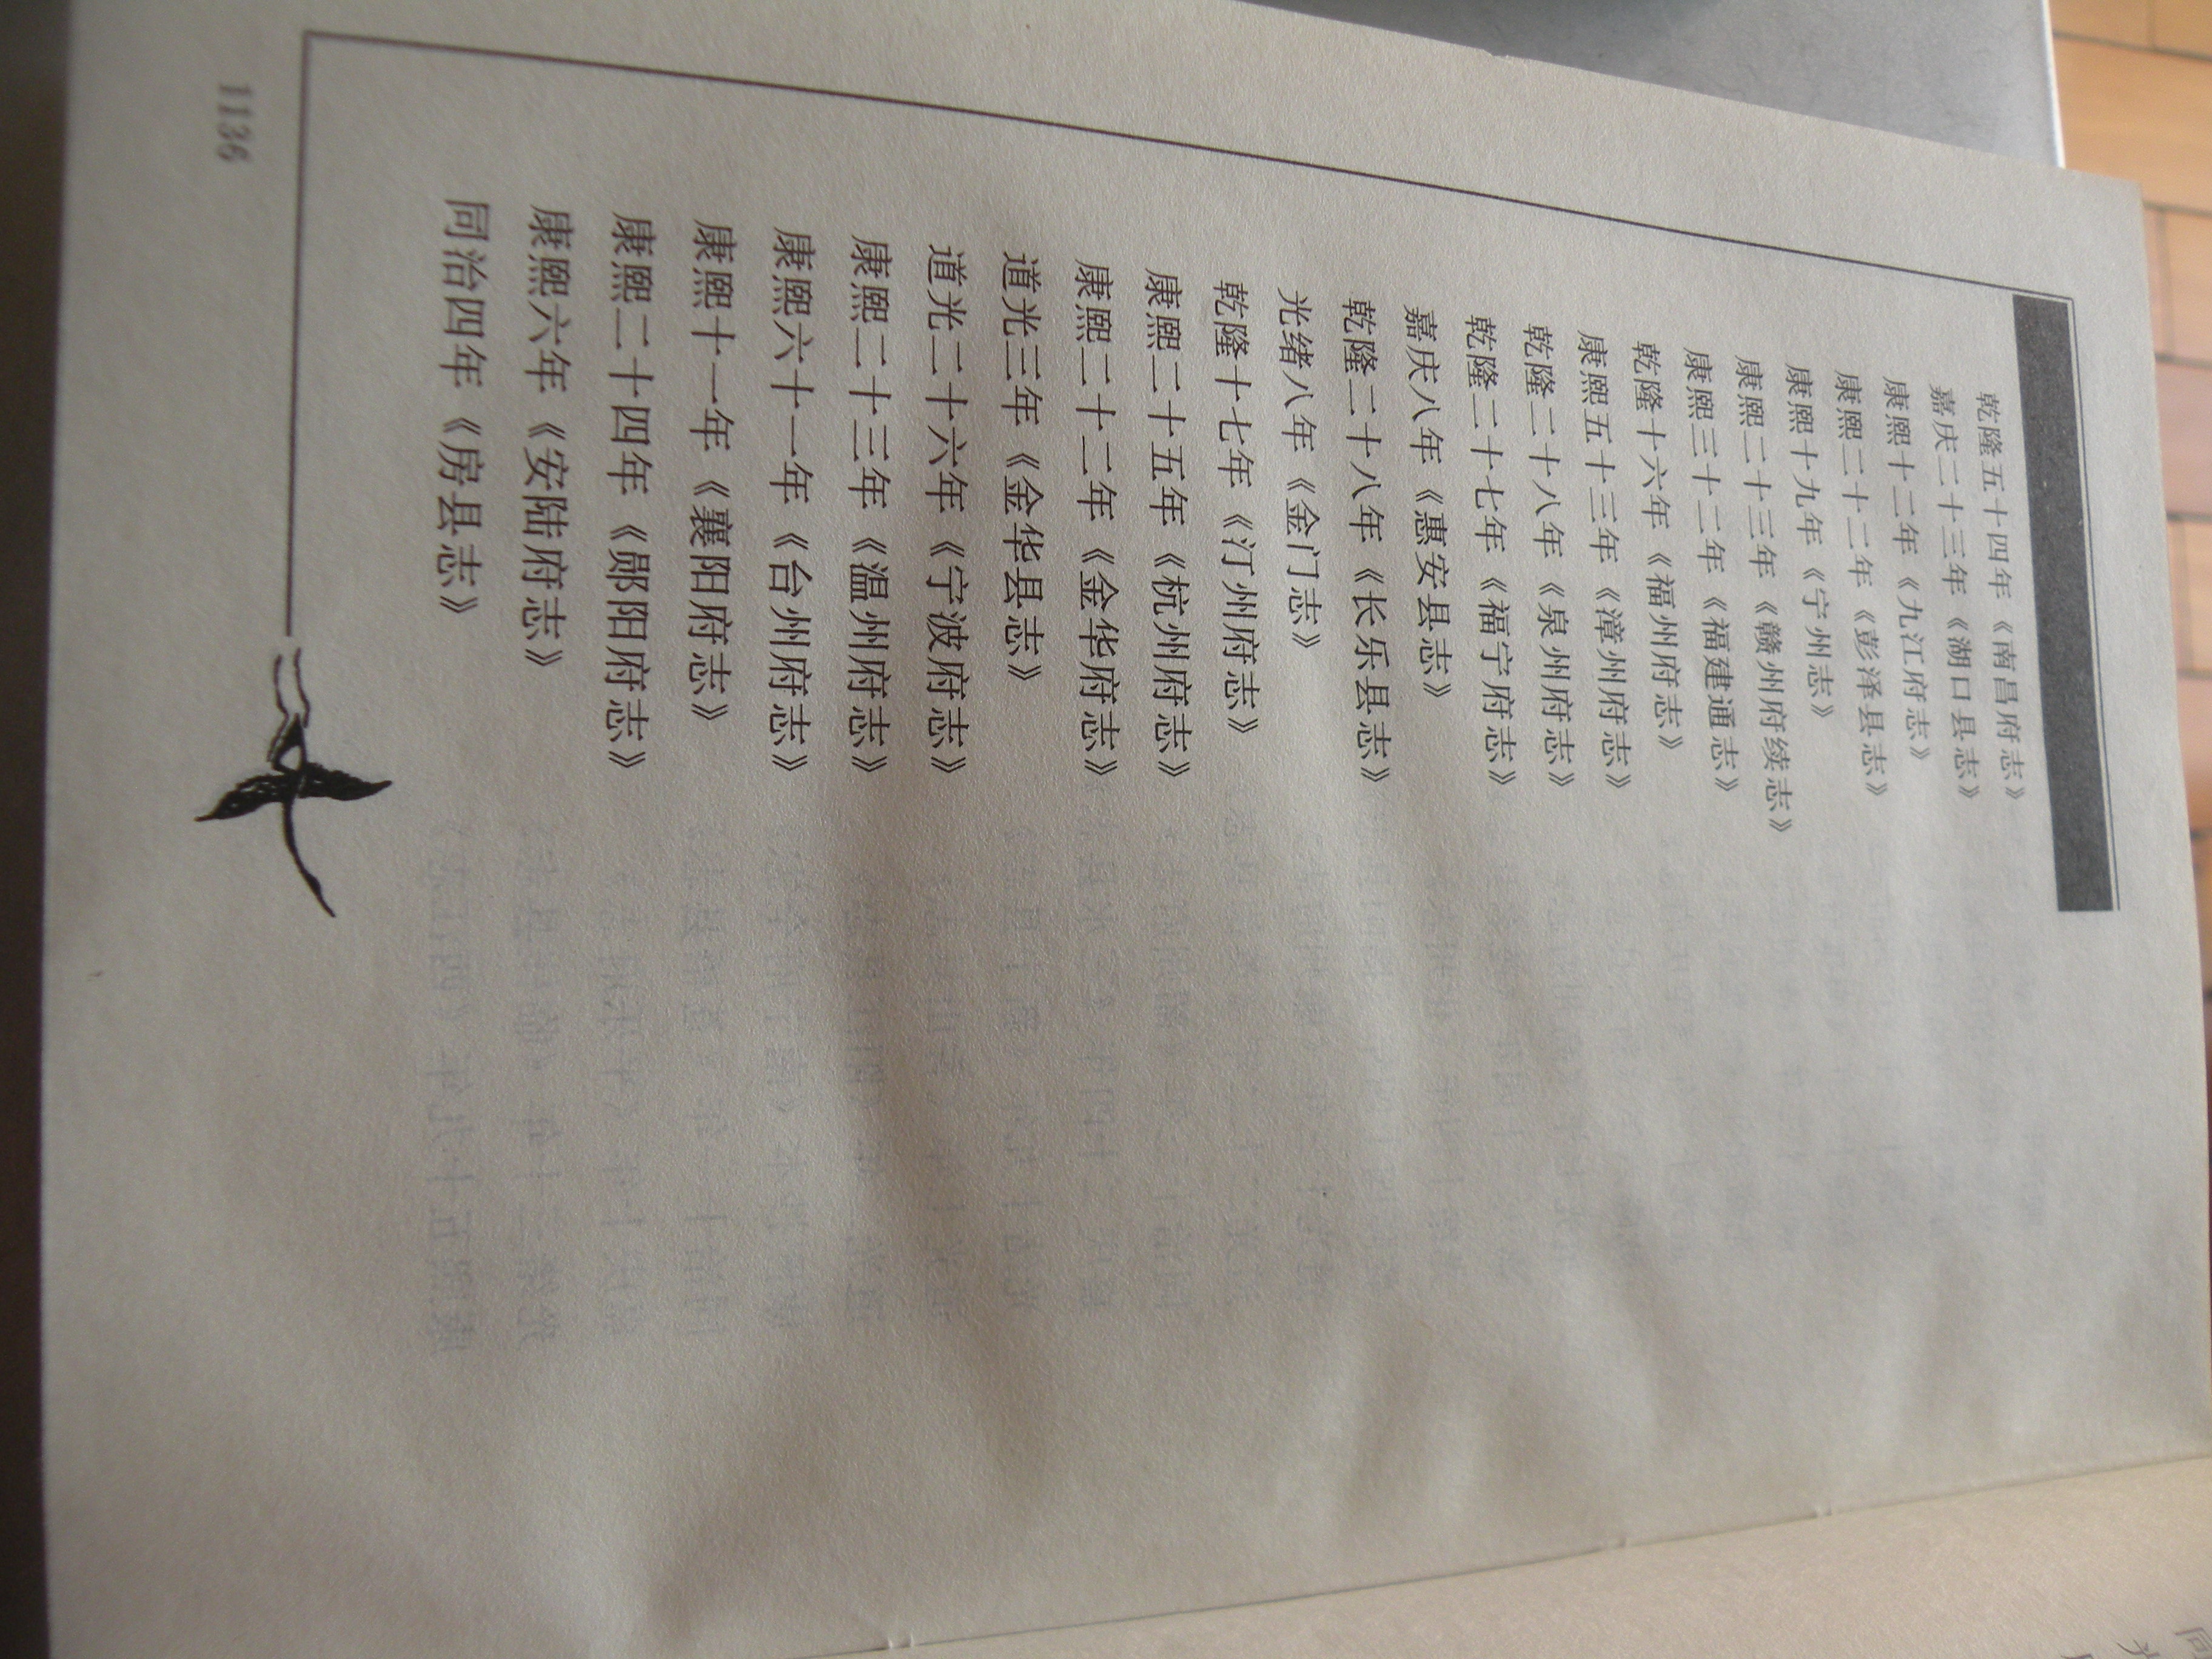 乾隆五十四年《南昌府志》
嘉庆二十三年《湖口县志》
康熙十二年《九江府志》
康熙二十二年《彭泽县志》
康熙十九年《宁州志》
康熙二十三年《赣州府续志》
康熙三十二年《福建通志》
乾隆十六年《福州府志》
康熙五十三年《漳州府志》
乾隆二十八年《泉州府志》
乾隆二十七年《福宁府志》
嘉庆八年《惠安县志》
乾隆二十八年《长乐县志》
光绪八年《金门志》
乾隆十七年《汀州府志》
康熙二十五年《杭州府志》
康熙二十二年《金华府志》
道光三年《金华县志》
道光二十六年《宁波府志》
康熙二十三年《温州府志》
康熙六十一年《台州府志》
康熙十一年《襄阳府志》
康熙二十四年《郧阳府志》
康熙六年《安陆府志》
同治四年《房县志》
1136